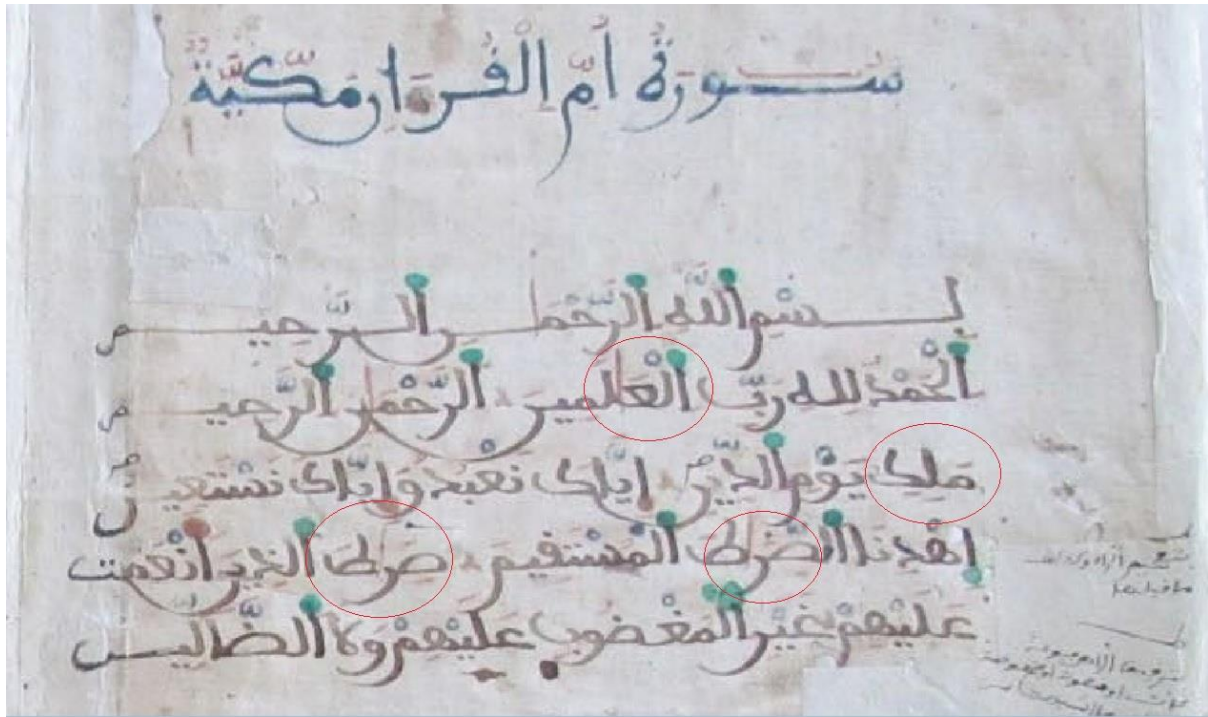 سُورَةُ أُمِّ الْقُرَانِ مَكِّيَّةٌ
بِسْمِ اللَّهِ الرَّحْمَٰنِ الرَّحِيمِ
الْحَمْدُ لِلهِ رَبِّ الْعَٰلَمِينَ الرَّحْمَٰنِ الرَّحِيمِ
مَلِكِ يَوْمِ الدِّينِ إِيَّاكَ نَعْبُدُ وَإِيَّاكَ نَسْتَعِينُ
اهْدِنَا الصِّرَٰطَ الْمُسْتَقِيمَ صِرَٰطَ الذِينَ أَنْعَمْتَ
عَلَيْهِمْ غَيْرِ الْمَغْضُوبِ عَلَيْهِمْ وَلَا الضَّالِّينَ